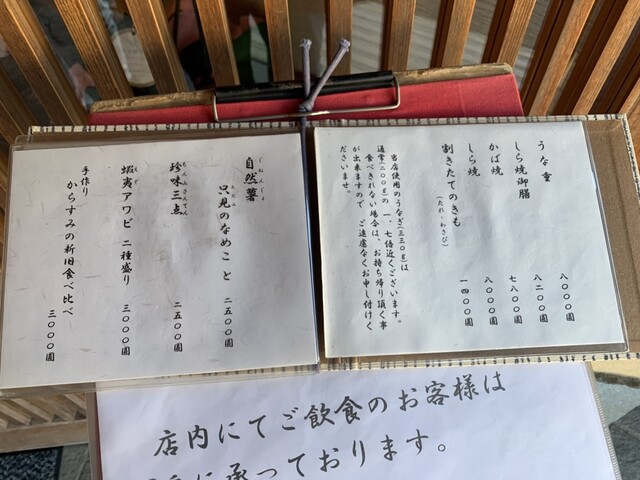 うな重
八〇〇〇圓
しら焼御膳
八二〇〇圓
かば焼
七八〇〇圓
しら焼
八〇〇〇圓
割きたてのきも
(たれ・わさび)
一四〇〇圓
当店使用のうなぎ(三三〇g)は
通常(二〇〇g)の一、七倍近くございます。
食べきれない場合は、お持ち帰り頂く事
が出来ますので、ご遠慮なくお申し付けく
ださいませ。
じねんじょ
自然薯
ただみ
只見のなめこ と
二五〇〇圓
ちんみさんてん
珍味三点
二五〇〇圓
えぞ
蝦夷アワビ 二種盛り
三〇〇〇圓
手作り
からすみの新旧食べ比べ
三〇〇〇圓
店内にてご飲食のお客様は
に承っております。